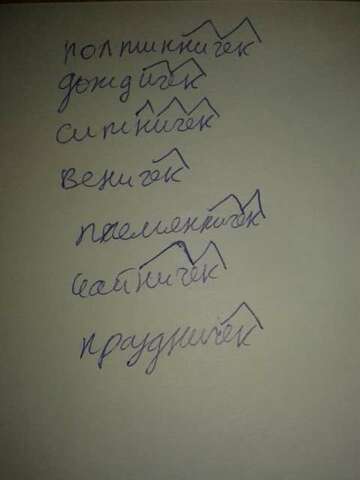 полтинничек
дождичек
ситничек
веничек
племянничек
чайничек
праздничек